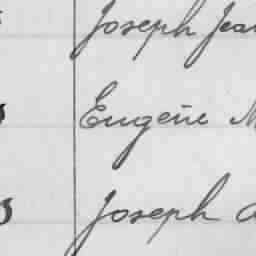 Joseph Jean
Eugène M
Joseph a